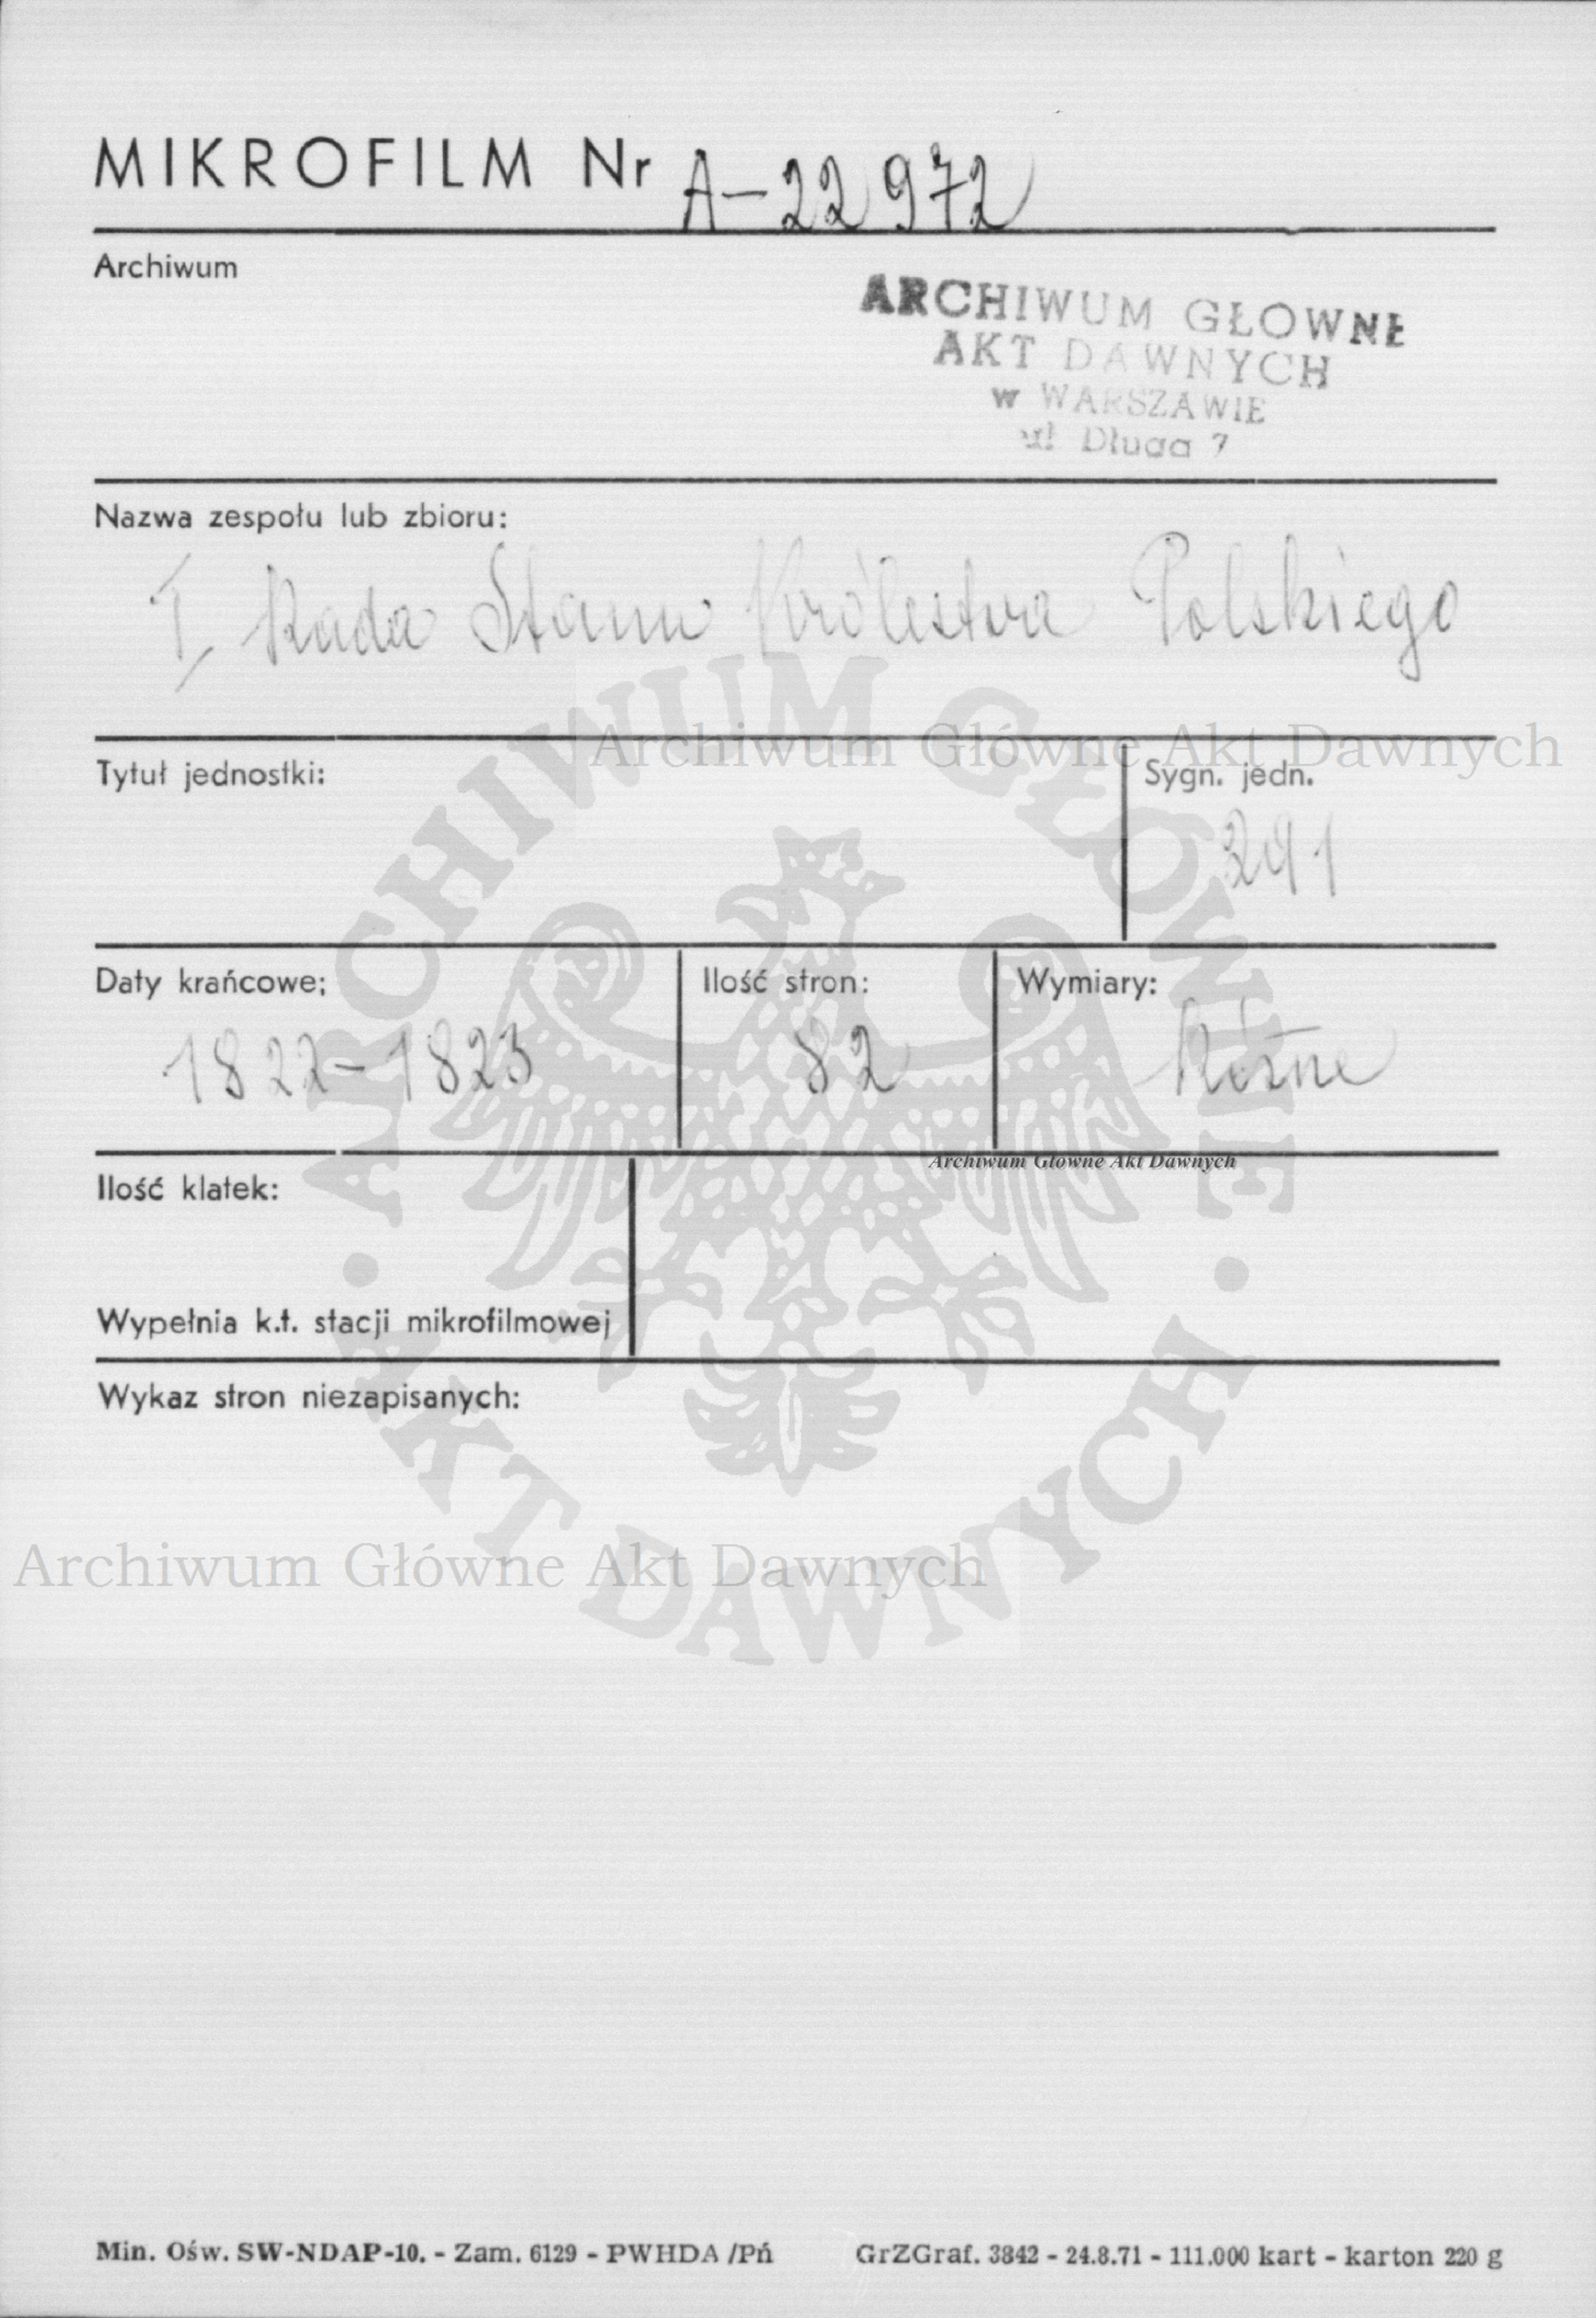 MIKROFILM Nr A-22972
Archiwum
ARCHIWUM GŁOWNE
AKT DAWNYCH
w WARSZAWIE
ul Długa 7
Nazwa zespołu lub zbioru:
I Rada Stanu Królestwa Polskiego
Archiwum Główne Akt Dawnych
Tytuł jednostki:
Sygn. jedn.
291
Daty krańcowe:
Ilość stron:
Wymiary:
1822-1823
82
Różne
Archiwum Główne Akt Dawnych
Ilość klatek:
Wypełnia k.t. stacji mikrofilmowej
Wykaz stron niezapisanych:
Archiwum Główne Akt Dawnych
ARCHIWUM GŁÓWNE
AKT DAWNYCH
Min. Ośw. SW-NDAP-10. - Zam. 6129 - PWHDA /Pń
GrZGraf. 3842 - 24.8.71 - 111.000 kart - karton 220 g